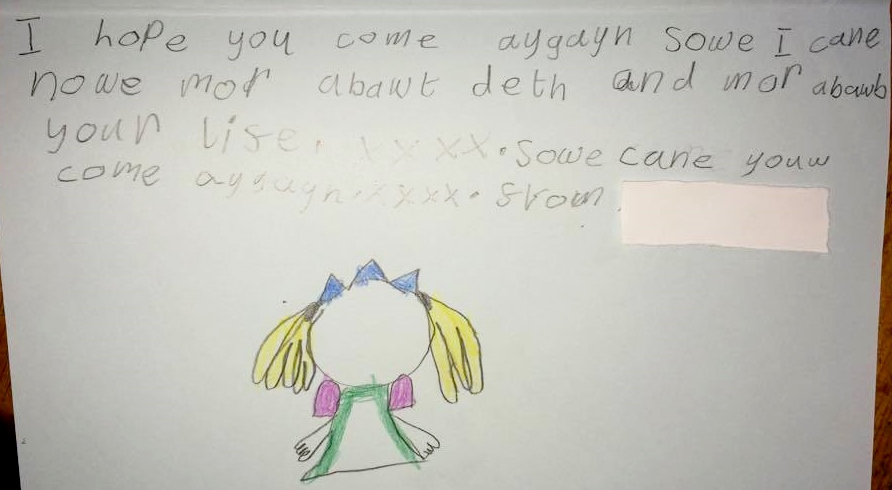 I hope you come aygayn sowe I cane
nowe mor abawt deth and mor abawb
your life. xxxx. sowe cane youw
come aygayn. xxxx. from